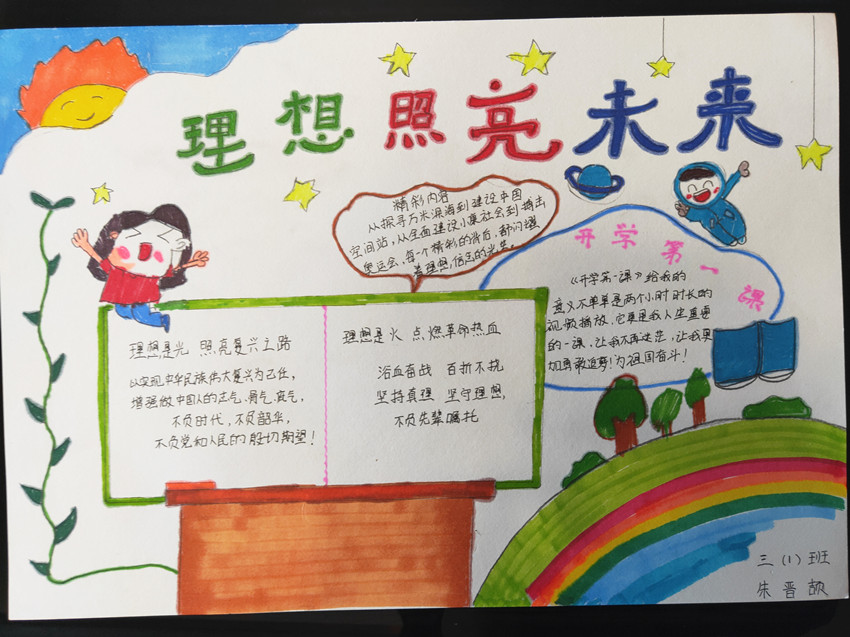 理想照亮未来
精彩内容
从探寻万米深海到建设中国
空间站,从全面建设小康社会到搏击
奥运会,每个精彩的背后,都闪耀
着理想信念的光芒。
开学第一课
《开学第一课》给我的
意义不单单是两个小时时长的
视频播放,它更是我人生重要
的一课,让我不再迷茫,让我更
加勇敢追梦!为祖国奋斗!
理想是光 照亮复兴之路
以实现中华民族伟大复兴为己任,
增强做中国人的志气、骨气、底气,
不负时代,不负韶华,
不负党和人民的殷切期望!
理想是火 点燃革命热血
浴血奋战 百折不挠
坚持真理 坚守理想,
不负先辈嘱托
三(1)班
朱晋颉